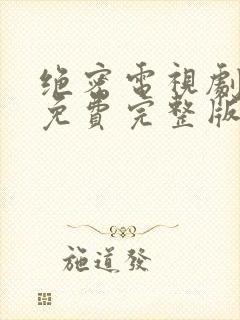 绝密電視劇
免費完整版
施道發